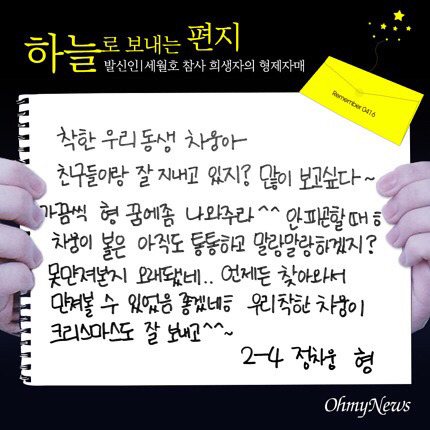 하늘로 보내는 편지
발신인|세월호 참사 희생자의 형제자매
Remember 0416
착한 우리동생 차웅아
친구들이랑 잘 지내고 있지? 많이 보고싶다~
가끔씩 형 꿈에좀 나와주라^^ 안피곤할때ㅎ
차웅이 볼은 아직도 통통하고 말랑말랑하겠지?
못만져본지 오래됐네.. 언제든 찾아와서
만져볼 수 있었음 좋겠네ㅎ 우리착한 차웅이
크리스마스도 잘 보내고^^~
2-4 정차웅 형
OhmyNews